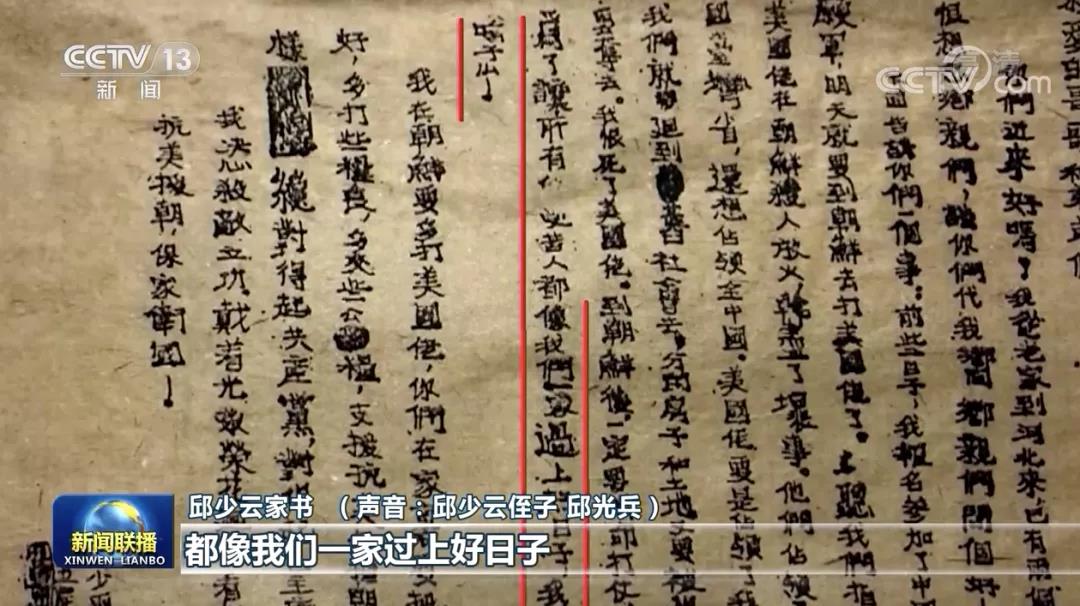 CCTV 13
新闻
高清
CCTV.com
哥哥和弟弟們
們近來好嗎?我從老家到河北來,已有兩個
但想鄉親們,請你們代我向鄉親們問個好
告訴你們一個事:前些日子,我報名參加了中
願軍,明天就要到朝鮮去打美國佬了。聽我
美國佬在朝鮮殺人放火,幹盡了壞事。他們佔領
國台灣省,還想佔領全中國。美國佬要是佔領了
我們就要迴到舊社會去。分的房子和土地又要被
奪去。我恨死了美國佬。到朝鮮後,一定要打仗
為了讓所有受苦人都像我們一家過上好日子我
啥子么!
我在朝鮮要多打美國佬,你們在家
好,多打些糧食,多交些公糧,支援抗
樣絕對得起共產黨,對
我決心殺敵立功,戴着光榮花
抗美援朝,保家衛國!
邱少云家书 (声音:邱少云侄子 邱光兵)
新闻联播
XINWEN LIANBO
都像我们一家过上好日子